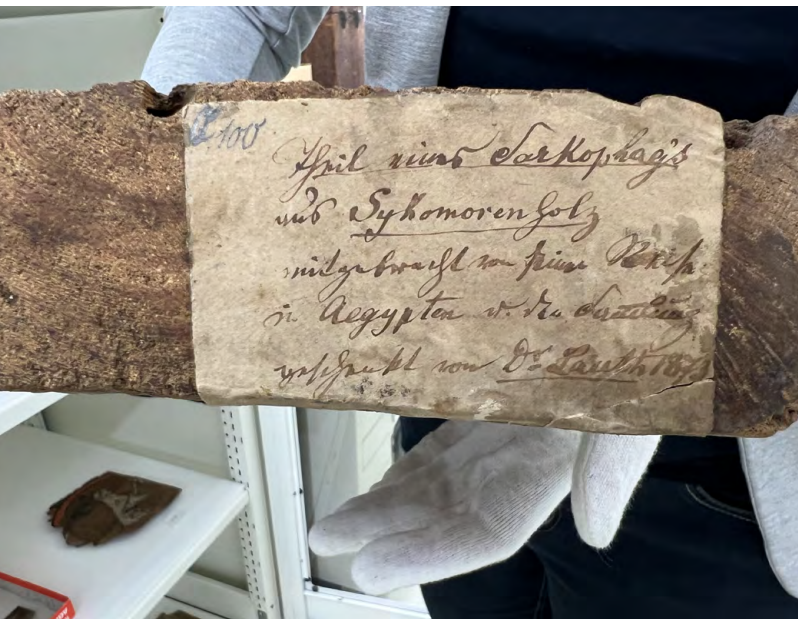 100
Theil eines Sarkophag's
aus Sykomorenholz
mitgebracht von seiner Reise
in Aegypten u. der Sammlung
geschenkt von Dr Lauth